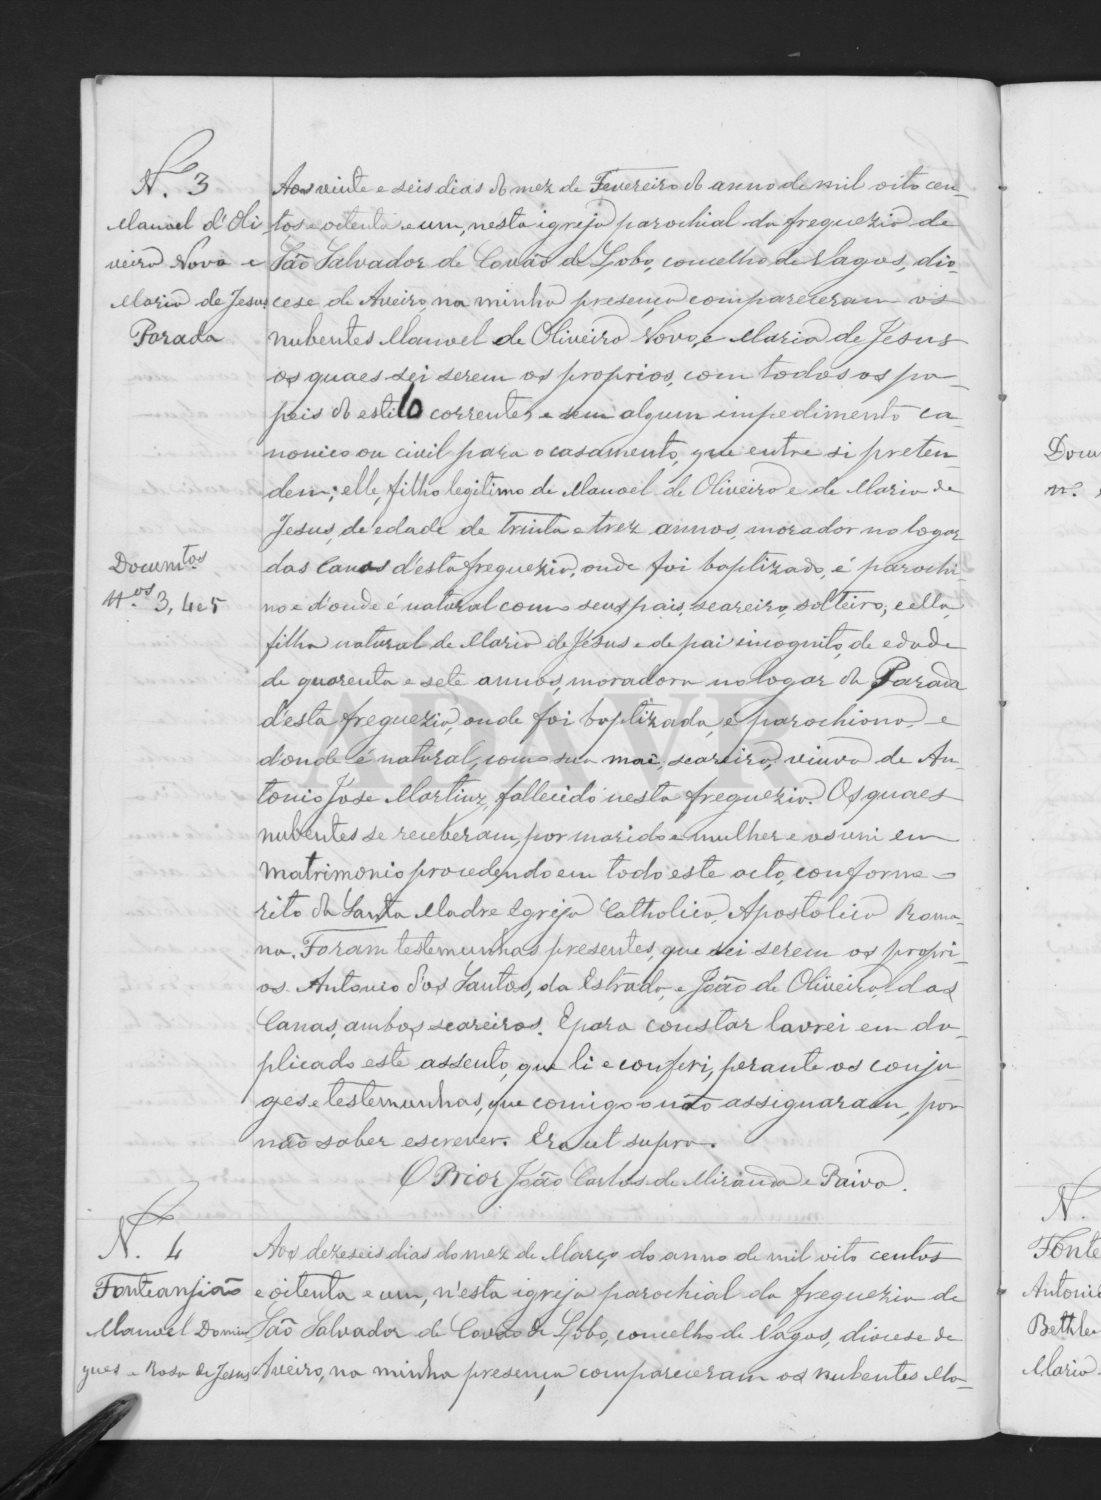 N.º 3
Manoel d'Oli
veira Novo e
Maria de Jesus
Parada
Aos vinte e seis dias do mez de Fevereiro do anno de mil oito cen-
tos e oitenta e um, nesta igreja parochial da freguezia de
São Salvador de Covão de Lobo, concelho de Vagos, dio-
cese de Aveiro, na minha presença compareceram os
nubentes Manoel de Oliveira Novo, e Maria de Jesus
os quaes sei serem os proprios, com todos os pa-
peis do estilo correntes, e sem algum impedimento ca-
nonico ou civil para o casamento, que entre si preten-
dem; elle, filho legitimo de Manoel de Oliveira e de Maria de
Jesus, de edade de trinta e trez annos, morador no logar
das Canas d'esta freguezia, onde foi baptizado, é parochi-
no e d'onde é natural com seus pais, seareiro, solteiro; e ella,
filha natural de Maria de Jesus e de pai incognito, de edade
de quarenta e sete annos, moradora no logar da Parada
d'esta freguezia, onde foi baptizada, é parochiana e
d'onde é natural, como sua mai, seareira, viuva de An-
tonio Jose Martins, fallecido nesta freguezia. Os quaes
nubentes se receberam, por marido e mulher e os uni em
matrimonio procedendo em todo este acto, conforme o
rito da Santa Madre Egreja Catholica, Apostolica Roma-
na. Foram testemunhas presentes, que sei serem os propri-
os Antonio dos Santos, da Estrada, e João de Oliveira, das
Canas, ambos seareiros. E para constar lavrei em du-
plicado este assento, que li e conferi, perante os conju-
ges e testemunhas, que comigo o não assignaram, por
não saber escrever. Era ut supra.
O Prior João Carlos de Miranda e Paiva.
Documtos
N.os 3, 4 e 5
N.º 4
Fonteanjião
Manoel Domin
gues e Rosa de Jesus
Aos dezeseis dias do mez de Março do anno de mil oito centos
e oitenta e um, n'esta igreja parochial da freguezia de
São Salvador de Covão de Lobo, concelho de Vagos, diocese de
Aveiro, na minha presença compareceram os nubentes Ma-
Docum
n.º
N.
Fonte
Antonio
Bethle
Maria
ADAVR